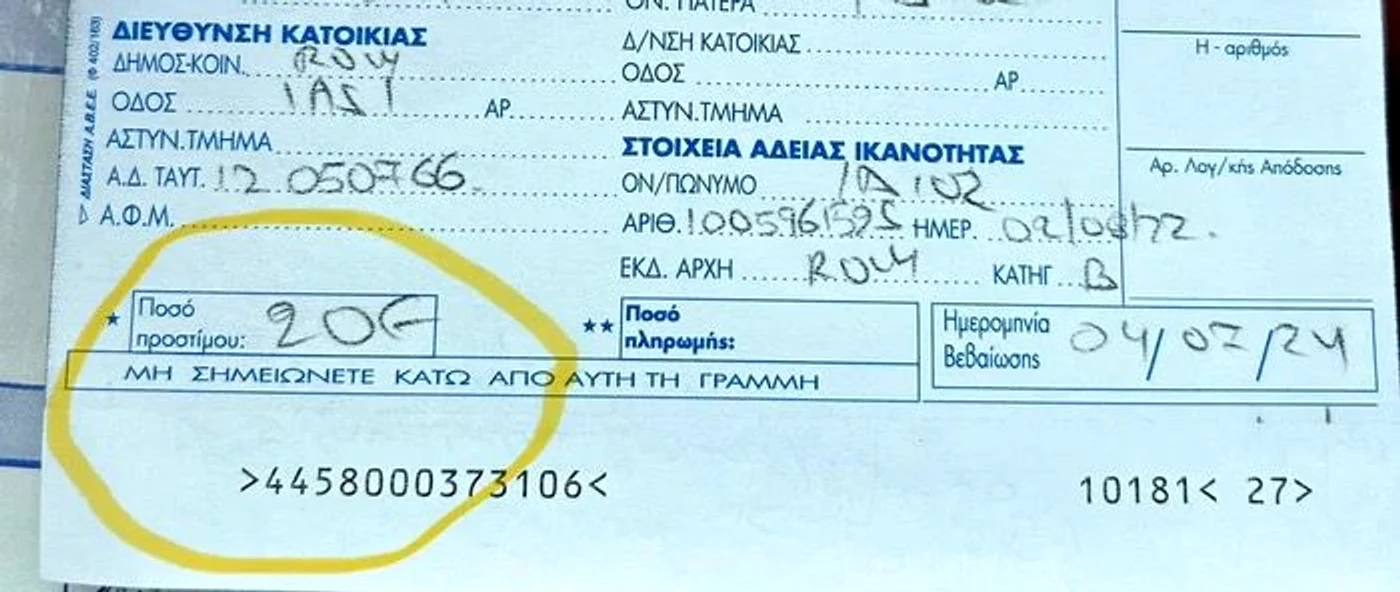 ΟΝ. ΠΑΤΕΡΑ
ΔΙΕΥΘΥΝΣΗ ΚΑΤΟΙΚΙΑΣ
ΔΗΜΟΣ-ΚΟΙΝ. ROW
ΟΔΟΣ IASI ΑΡ.
ΑΣΤΥΝ.ΤΜΗΜΑ
Α.Δ. ΤΑΥΤ. 12 050766
Α.Φ.Μ.
ΔΙΑΣΤΑΣΗ Α.Β.Ε.Ε. (Φ 402/163)
Δ/ΝΣΗ ΚΑΤΟΙΚΙΑΣ
ΟΔΟΣ ΑΡ.
ΑΣΤΥΝ.ΤΜΗΜΑ
ΣΤΟΙΧΕΙΑ ΑΔΕΙΑΣ ΙΚΑΝΟΤΗΤΑΣ
ΟΝ/ΠΩΝΥΜΟ
ΑΡΙΘ. ΗΜΕΡ.
ΕΚΔ. ΑΡΧΗ ROW ΚΑΤΗΓ. B
Η - αριθμός
Αρ. Λογ/κής Απόδοσης
* Ποσό
προστίμου: 20€
** Ποσό
πληρωμής:
Ημερομηνία
Βεβαίωσης 04/07/24
ΜΗ ΣΗΜΕΙΩΝΕΤΕ ΚΑΤΩ ΑΠΟ ΑΥΤΗ ΤΗ ΓΡΑΜΜΗ
>4458000373106< 10181< 27>